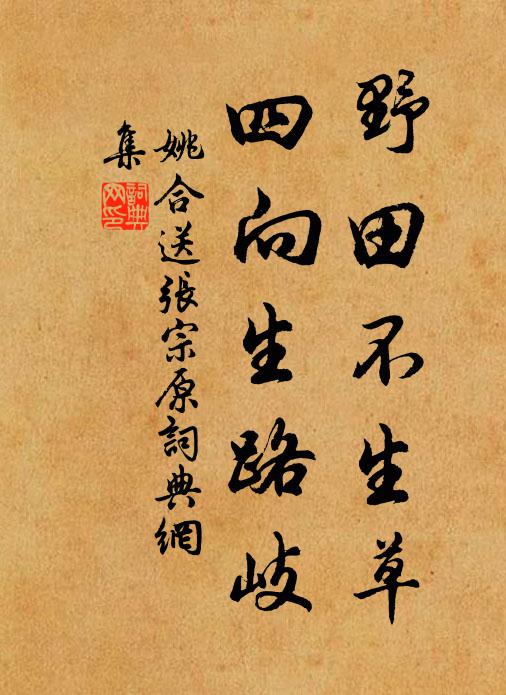 野田不生草
四向生路岐
姚合送張宗原詞典網
集
詞典网印